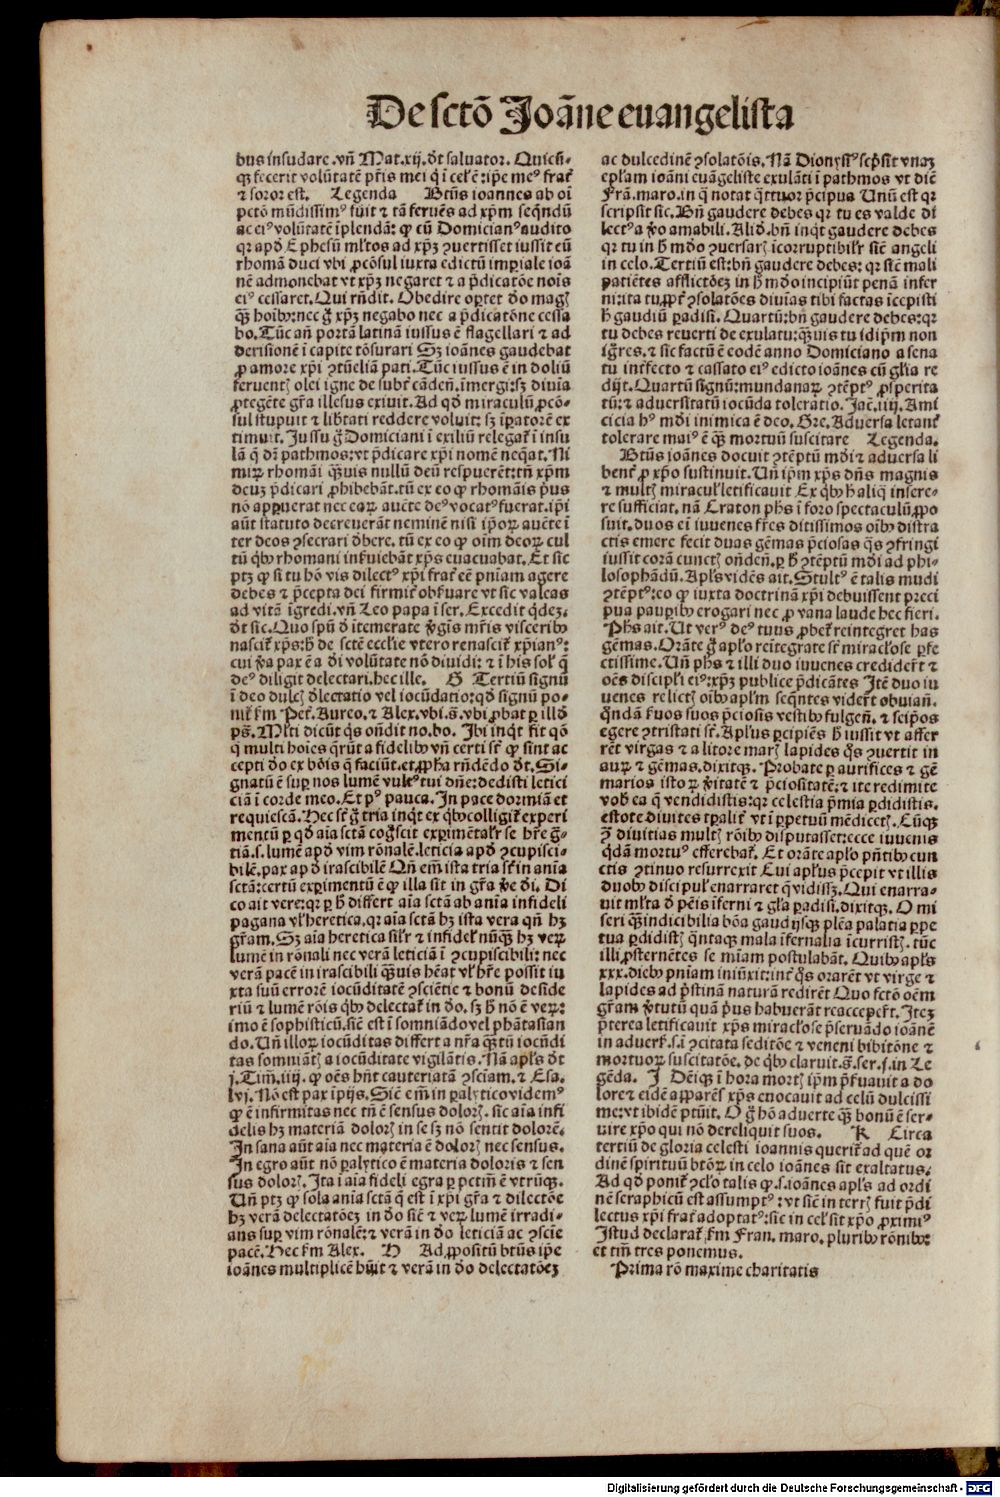 De sctō Joāne euangelista
bus insudare .vn̄ Mat.xij. dt saluator. Quicū-
qꝫ fecerit volūtatē pr̄is mei q̄ ī cel̓ ē: ip̄e meꝰ frat̄
⁊ soror est. Legenda Btūs ioannes ab oī
pctō mūdissimꝰ fuit ⁊ tā feruēs ad xp̄m seqndū
ac eiꝰ volūtatē īplendā: ꝙ cū Domicianꝰ audito
qꝛ apd̓ Ephesū ml̓tos ad xp̄ꝫ ꝯuertisset iussit eū
rhomā duci vbi ꝓcōsul iuxta edictū imꝑiale ioā
nē admonebat vt xp̄ꝫ negaret ⁊ a p̄dicatōe nois
eiꝰ cessaret. Qui rn̄dit. Obedire oꝑtet d̓o magꝭ
qꝫ̄ hoībꝰ: nec g̓ xp̄ꝫ negabo nec a p̄dicatōne cessa
bo. Tūc an̄ portā latinā iussus ē flagellari ⁊ ad
derisionē ī capite tōsurari Sꝫ ioānes gaudebat
ꝓ amore xp̄i ꝯtūeliā pati. Tūc iussus ē in doliū
feruentꝭ olei igne de subt̓ cādēn̄. īmergi: sꝫ diuīa
ꝓtegēte gr̄a illesus exiuit. Ad qd̓ miraculū ꝓcō-
sul stupuit ⁊ lib̓tati reddere voluit: sꝫ iꝑatorē ex
timuit. Jussu g̓ Domiciani ī exiliū relegat̄ ī insu
lā q̄ dr̄ pathmos: vt p̄dicare xp̄i nomē neqat. Ni
miꝝ rhomāi qꝫ̄uis nullū deū respuerēt: tn̄ xp̄m
deuꝫ p̄dicari ꝓhibebāt. tū ex eo ꝙ rhomāis p̄us
nō appuerat nec eaꝝ aucte deꝰ vocatꝰ fuerat. ip̄i
aūt statuto decreuerāt neminē nisi ip̄oꝝ aucte ī
ter deos ꝯsecrari d̓bere. tū ex eo ꝙ oīm deoꝝ cul
tū qbꝰ rhomani inf̓uiebāt xp̄s euacuabat. Et sic
ptꝫ ꝙ si tu hō vis dilectꝰ xp̄i frat̄ eē pn̄iam agere
debes ⁊ p̄cepta dei firmit̄ obf̓uare vt sic valeas
ad vitā īgredi. vn̄ Leo papa ī ser. Excedit qdeꝫ.
dt sic. Quo spū d̓ itemerate v̓gīs mr̄is visceribꝰ
nascit̄ xp̄s: h̓ de sctē ecclie vtero renascit̄ xp̄ianꝰ:
cui v̓a pax ē a d̓i volūtate nō diuidi: ⁊ ī his sol̓ q̄
deꝰ diligit delectari. hec ille. G Tertiū signū
ī deo dulcꝭ d̓lectatio vel iocūdatio: qd̓ signū po-
nit̄ fm̄ Pet̄. Aureo. ⁊ Alex. vbi.s̄. vbi ꝓbat ꝑ illd̓
ps̄. Ml̓ti dicūt qs on̄dit no. bo. Jbi inq̄t fit qō
q̄ multi hoies q̄rūt a fidelibꝰ vn̄ certi st̄ ꝙ sint ac
cepti d̓o ex bōis q̄ faciūt. et ꝓpha rn̄dēdo dt. Si-
gnatū ē suꝑ nos lumē vultꝰ tui dn̄e: dedisti letici
ciā ī corde meo. Et pꝰ pauca. Jn pace dormiā et
requiescā. Hec st̄ g̓ tria inq̄t ex qbꝰ colligit̄ experi
mentū ꝑ qd̓ aīa sctā cog̓scit exꝑimētalr̄ se hr̄e gr̄-
tiā. s. lumē apd̓ vim rōnalē. leticia apd̓ ꝯcupisci-
bilē. pax apd̓ irascibilē Qn̄ em̄ ista tria st̄ in aīa
sctā: certū exꝑimentū ē ꝙ illa sit in gr̄a v̓e d̓i. Di
co ait vere: qꝛ ꝑ h̓ differt aīa sctā ab anīa infideli
pagana vl̓ heretica. qꝛ aīa sctā hꝫ ista vera qn̄ hꝫ
gr̄am. Sꝫ aīa heretica silr̄ ⁊ infidel̓ nūqꝫ̄ hꝫ veꝝ
lumē in rōnali nec verā leticiā ī ꝯcupiscibili: nec
verā pacē in irascibili qꝫ̄uis hēat vl̓ hr̄e possit iu
xta suū errorē iocūditatē ꝯsciētie ⁊ bonū deside
riū ⁊ lumē rōis qbꝰ delectat̄ in d̓o. sꝫ h̓ nō ē veꝝ:
imo ē sophisticū. sic̄ est ī somniādo vel phātasian
do. Un̄ illoꝝ iocūditas differt a nr̄a qꝫ̄tū iocūdi
tas somniātꝭ a iocūditate vigilātis. Nā apl̓s dt
j. Tim̄. iiij. ꝙ oēs hn̄t cauteriatā ꝯsciam. ⁊ Esa.
lvj. Nō est pax īpijs. Sic̄ em̄ in ꝑalytico videmꝰ
ꝙ ē infirmitas nec tn̄ ē sensus dolorꝭ. sic aīa infi
delis hꝫ materiā dolorꝭ in se sꝫ nō sentit dolorē.
Jn sana aūt aīa nec materia ē dolorꝭ nec sensus.
Jn egro aūt nō ꝑalytico ē materia doloris ⁊ sen
sus dolorꝭ. Jta ī aīa fideli egra ꝑ pctm̄ ē vtrūqꝫ.
Un̄ ptꝫ ꝙ sola anīa sctā q̄ est ī xp̄i gr̄a ⁊ dilectōe
hꝫ verā delectatōeꝫ in d̓o sic̄ ⁊ veꝝ lumē irradi-
ans suꝑ vim rōnalē: ⁊ verā in d̓o leticiā ac ꝯscie
pacē. Hec fm̄ Alex. H Ad ꝓpositū btūs ip̄e
ioānes multiplicē hūit ⁊ verā in d̓o delectatōeꝫ
ac dulcedinē ꝯsolatōis. Nā Dionysiꝰ scp̄sit vnaꝫ
ep̄lam ioāni euāgeliste exulāti ī pathmos vt dic̄
Frā. maro. in q̄ notat qttuor p̄cipua Unū est qꝛ
scripsit sic. Bn̄ gaudere debes qꝛ tu es valde di
lectꝰ a v̓o amabili. Aliḋ. bn̄ inq̄t gaudere debes
qꝛ tu in h̓ mdo ꝯuersarꝭ īcorruptibilr̄ sic̄ angeli
in celo. Tertiū est: bn̄ gaudere debes: qꝛ sic̄ mali
patiētes afflictōeꝫ in h̓ mdo incipiūt penā infer
ni: ita tu ꝓpt̄ ꝯsolatōes diuīas tibi factas īcepisti
h̓ gaudiū ꝑadisi. Quartū: bn̄ gaudere debes: qꝛ
tu debes reuerti de exulatu: qꝫ̄uis tu idip̄m non
ig̓res. ⁊ sic factū ē eodē anno Domiciano a sena
tu int̄fecto ⁊ cassato eiꝰ edicto ioānes cū gl̓ia re
dijt. Quartū signū: mundanaꝝ ꝯtēptꝰ ꝓsperita
tū: ⁊ aduersitatū iocūda toleratio. Jac̄. iiij. Ami
cicia hꝰ mdi inimica ē deo. Gre. Aduersa letant̄
tolerare maiꝰ ē qꝫ̄ mortuū suscitare Legenda.
Btūs ioānes docuit ꝯtēptū mdi ⁊ aduersa li
bent̄ ꝓ xp̄o sustinuit. Un̄ ip̄m xp̄s dn̄s magnis
⁊ multꝭ miracul̓ letificauit Ex qbꝰ h̓ aliq̄ insere-
re sufficiat. nā Craton ph̄s ī foro spectaculū ꝓpo
suit. duos ei iuuenes fr̄es ditissimos oībꝰ distra
ctis emere fecit duas gēmas p̄ciosas qs ꝯfringi
iussit corā cunctꝭ on̄den̄. ꝑ h̓ ꝯtēptū mdi ad phi-
losophādū. Apl̓s vidēs ait. Stultꝰ ē talis mudi
ꝯtēptꝰ: eo ꝙ iuxta doctrinā xp̄i debuissent preci
pua pauꝑibꝰ erogari nec ꝓ vana laude hec fieri.
Ph̄s ait. Ut verꝰ deꝰ tuus ꝓbet̄ reintegret has
gēmas. Orāte g̓ apl̓o reītegrate st̄ miracl̓ose ꝑfe
ctissime. Un̄ ph̄s ⁊ illi duo iuuenes crediderūt ⁊
oēs discipl̓i eiꝰ: xp̄ꝫ publice p̄dicātes Jtē duo iu
uenes relictꝭ oībꝰ apl̓m seq̄ntes vider̄t obuian̄.
q̄ndā f̓uos suos p̄ciosis vestibꝰ fulgen̄. ⁊ seip̄os
egere ꝯtristati st̄. Apl̓us ꝑcipiēs h̓ iussit vt affer
rēt virgas ⁊ a litore marꝭ lapides qs ꝯuertit in
auꝝ ⁊ gēmas. dixitqꝫ. Probate ꝑ aurifices ⁊ gē
marios istoꝝ v̓itatē ⁊ p̄ciositatē: ⁊ ite redimite
vob̓ ea q̄ vendidistis: qꝛ celestia p̄mia ꝑdidistis.
estote diuites tꝑalit̄ vt ī ꝑpetuū mēdicetꝭ. Cūqꝫ
ꝯ diuitias multꝭ rōibꝰ disputasset: ecce iuuenis
qdā mortuꝰ efferebat̄. Et orāte apl̓o pn̄tibꝰ cun
ctis ꝯtinuo resurrexit Cui apl̓us p̄cepit vt illis
duobꝰ discipul̓ enarraret q̄ vidissꝫ. Qui enarra-
uit ml̓ta d̓ pēis īferni ⁊ gl̓a ꝑadisi. dixitqꝫ. O mi
seri qꝫ̄ indicibilia bōa gaudijsqꝫ plēa palatia ꝑpe
tua ꝑdidistꝭ qntaqꝫ mala īfernalia īcurristꝭ. tūc
illi ꝓsternētes se mīam postulabāt. Quibꝰ apl̓s
xxx. diebꝰ pn̄iam iniūxit: int̄ qs orarēt vt virge ⁊
lapides ad p̄stinā naturā redirēt Quo fctō oēm
gr̄am v̓tutū quā p̄us habuerāt reacceper̄t. Jteꝫ
p̄terea letificauit xp̄s miracl̓ose p̄seruādo ioānē
in aduers̄. s. ī ꝯcitata seditōe ⁊ veneni bibitōne ⁊
mortuoꝝ suscitatōe. de qbꝰ claruit. s̄. ser. j. in Le
gēda. J Dēiqꝫ ī hora mortꝭ ip̄m p̄f̓uauit a do
lore ⁊ eidē apparēs xp̄s euocauit ad celū dulcissi
me: vt ibidē ptūit. O g̓ hō aduerte qꝫ̄ bonū ē ser-
uire xp̄o qui nō dereliquit suos. K Circa
tertiū de gloria celesti ioannis querit̄ ad quē or
dinē spirituū btōꝝ in celo ioānes sit exaltatus.
Ad qd̓ ponit̄ ꝯcl̓o talis ꝙ. s. ioānes apl̓s ad ordi
nē seraphicū est assumptꝰ: vt sic̄ in terrꝭ fuit p̄di
lectus xp̄i frat̄ adoptatꝰ: sic in cel̓ sit xp̄o ꝓximiꝰ
Jstud declarat̄ fm̄ Fran. maro. pluribꝰ rōnibꝰ:
et tm̄ tres ponemus.
Prima rō maxime charitatis
Digitalisierung gefördert durch die Deutsche Forschungsgemeinschaft - DFG